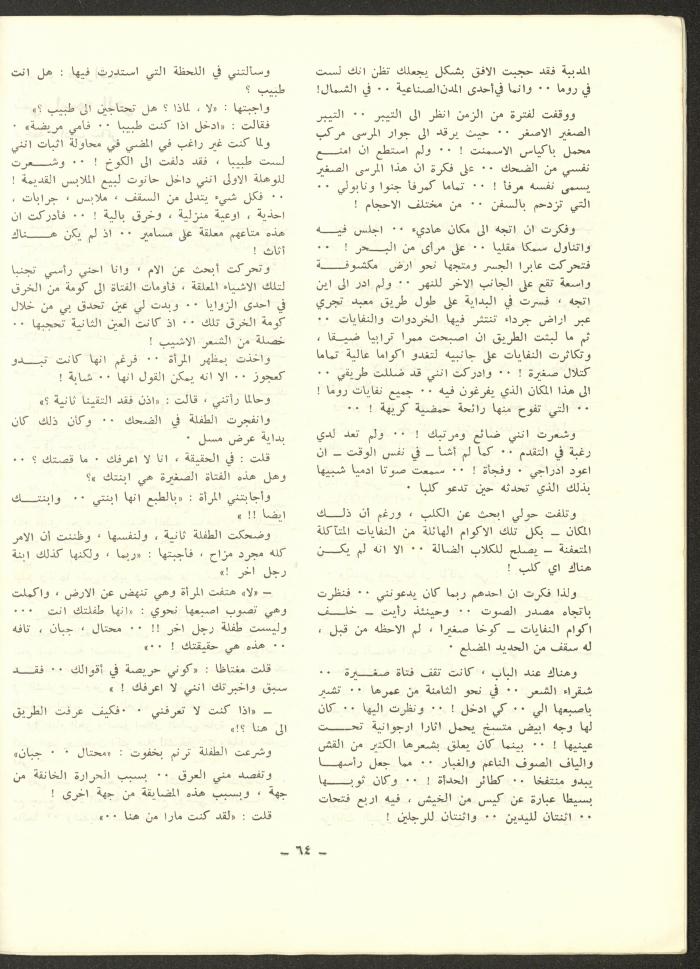 المدببة فقد حجبت الافق بشكل يجعلك تظن انك لست
في روما ٠٠ وانما في أحدى المدن الصناعية ٠٠ في الشمال!
ووقفت لفترة من الزمن انظر الى التيبر ٠٠ التيبر
الصغير الاصفر ٠٠ حيث يرقد الى جوار المرسى مركب
محمل باكياس الاسمنت ! ٠٠ ولم استطع ان امنـــع
نفسي من الضحك ٠٠ على فكرة ان هذا المرسى الصغير
يسمى نفسه مرفأ ! ٠٠ تماما كمرفأ جنوا ونابولي ٠٠
التي تزدحم بالسفن ٠٠ من مختلف الاحجام !
وفكرت ان اتجه الى مكان هادىء ٠٠ اجلس فيـــه
واتناول سمكا مقليا ٠٠ على مرأى من البـــحر ! ٠٠
فتحركت عابرا الجسر ومتجها نحو ارض مكشوفـــة
واسعة تقع على الجانب الاخر للنهر ٠٠ ولم ادر الى اين
اتجه ، فسرت في البداية على طول طريق معبد تجري
عبر اراض جرداء تنتثر فيها الخردوات والنفايات ٠٠
ثم ما لبثت الطريق ان اصبحت ممرا ترابيا ضيقـا ،
وتكاثرت النفايات على جانبيه لتغدو اكواما عالية تماما
كتلال صغيرة ! ٠٠ وادركت انني قد ضللت طريقي ٠٠
الى هذا المكان الذي يفرغون فيه ٠٠ جميع نفايات روما !
٠٠ التي تفوح منها رائحة حمضية كريهة ! ٠٠
وشعرت انني ضائع ومرتبك ! ٠٠ ولم تعد لدي
رغبة في التقدم ٠٠ كما لم أشأ ــ في نفس الوقت ــ ان
اعود ادراجي ٠ وفجأة ! ٠٠ سمعت صوتا ادميا شبيها
بذلك الذي تحدثه حين تدعو كلبا ٠
وتلفت حولي ابحث عن الكلب ، ورغم أن ذلــــك
المكان ــ بكل تلك الاكوام الهائلة من النفايات المتآكلة
المتعفنة ــ يصلح للكلاب الضالة ٠٠ الا انه لم يكــن
هناك اي كلب !
ولذا فكرت ان احدهم ربما كان يدعونني ٠٠ فنظرت
باتجاه مصدر الصوت ٠٠ وحينئذ رأيت ــ خلــف
اكوام النفايات ــ كوخا صغيرا ، لم الاحظه من قبل ،
له سقف من الحديد المضلع ٠
وهناك عند الباب ، كانت تقف فتاة صغــيرة ٠٠
شقراء الشعر ٠٠ في نحو الثامنة من عمرها ٠٠ تشير
باصبعها الي ٠٠ كي ادخل ! ٠٠ ونظرت اليها ٠٠ كان
لها وجه ابيض متسخ يحمل اثارا ارجوانية تحـــت
عينيها ! ٠٠ بينما كان يعلق بشعرها الكثير من القش
والياف الصوف الناعم والغبار ٠٠ مما جعل رأسهــا
يبدو منتفخا ٠٠ كطائر الحدأة ! ٠٠ وكان ثوبـــها
بسيطا عبارة عن كيس من الخيش ، فيه اربع فتحات
٠٠ اثنتان لليدين ٠٠ واثنتان للرجلين !
وسألتني في اللحظة التي استدرت فيها : هل انت
طبيب ؟
واجبتها : «لا ، لماذا ؟ هل تحتاجين الى طبيب ؟»
فقالت : «ادخل اذا كنت طبيبا ٠٠ فامي مريضة» ٠
ولما كنت غير راغب في المضي في محاولة اثبات انني
لست طبيبا ، فقد دلفت الى الكوخ ! ٠٠ وشـــعرت
للوهلة الاولى انني داخل حانوت لبيع الملابس القديمة !
٠٠ فكل شيء يتدلى من السقف ، ملابس ، جرابات ،
احذية ، اوعية منزلية ، وخرق بالية ! ٠٠ فأدركت ان
هذه متاعهم معلقة على مسامير ٠٠ اذ لم يكن هــــناك
أثاث !
وتحركت أبحث عن الام ، وانا احني رأسي تجنبا
لتلك الاشياء المعلقة ، فأومأت الفتاة الى كومة من الخرق
في احدى الزوايا ٠٠ وبدت لي عين تحدق بي من خلال
كومة الخرق تلك ٠٠ اذ كانت العين الثانية تحجبها ٠٠
خصلة من الشعر الاشيب !
واخذت بمظهر المرأة ٠٠ فرغم انها كانت تبـــدو
كعجوز ٠٠ الا انه يمكن القول انها ٠٠ شابة !
وحالما رأتني ، قالت : «اذن فقد التقينا ثانية ؟»
وانفجرت الطفلة في الضحك ٠٠ وكان ذلك كان
بداية عرض مسل ٠
قلت : في الحقيقة ، انا لا اعرفك ٠ ما قصتك ؟ ٠٠
وهل هذه الفتاة الصغيرة هي ابنتك »؟
وأجابتني المرأة : «بالطبع انها ابنتي ٠٠ وابنتــك
ايضا !! »
وضحكت الطفلة ثانية ، ولنفسها ، وظننت أن الامر
كله مجرد مزاح ، فأجبتها : «ربما ، ولكنها كذلك ابنة
رجل اخر !»
ــ «لا» هتفت المرأة وهي تنهض عن الارض ، واكملت
وهي تصوب اصبعها نحوي : «انها طفلتك انت ٠٠٠
وليست طفلة رجل اخر !! ٠٠ محتال ، جبان ، تافه
٠٠ هذه هي حقيقتك ! ٠٠»
قلت مغتاظا : «كوني حريصة في أقوالك ٠٠ فقــد
سبق واخبرتك انني لا اعرفك ! »
ــ «اذا كنت لا تعرفني ٠٠ فكيف عرفت الطريق
الى هنا ؟!»
وشرعت الطفلة ترنم بخفوت : «محتال ٠٠ جبان»
وتفصد مني العرق ٠٠ بسبب الحرارة الخانقة من
جهة ، وبسبب هذه المضايقة من جهة اخرى !
قلت : «لقد كنت مارا من هنا ٠٠»
ــ ٦٤ ــ